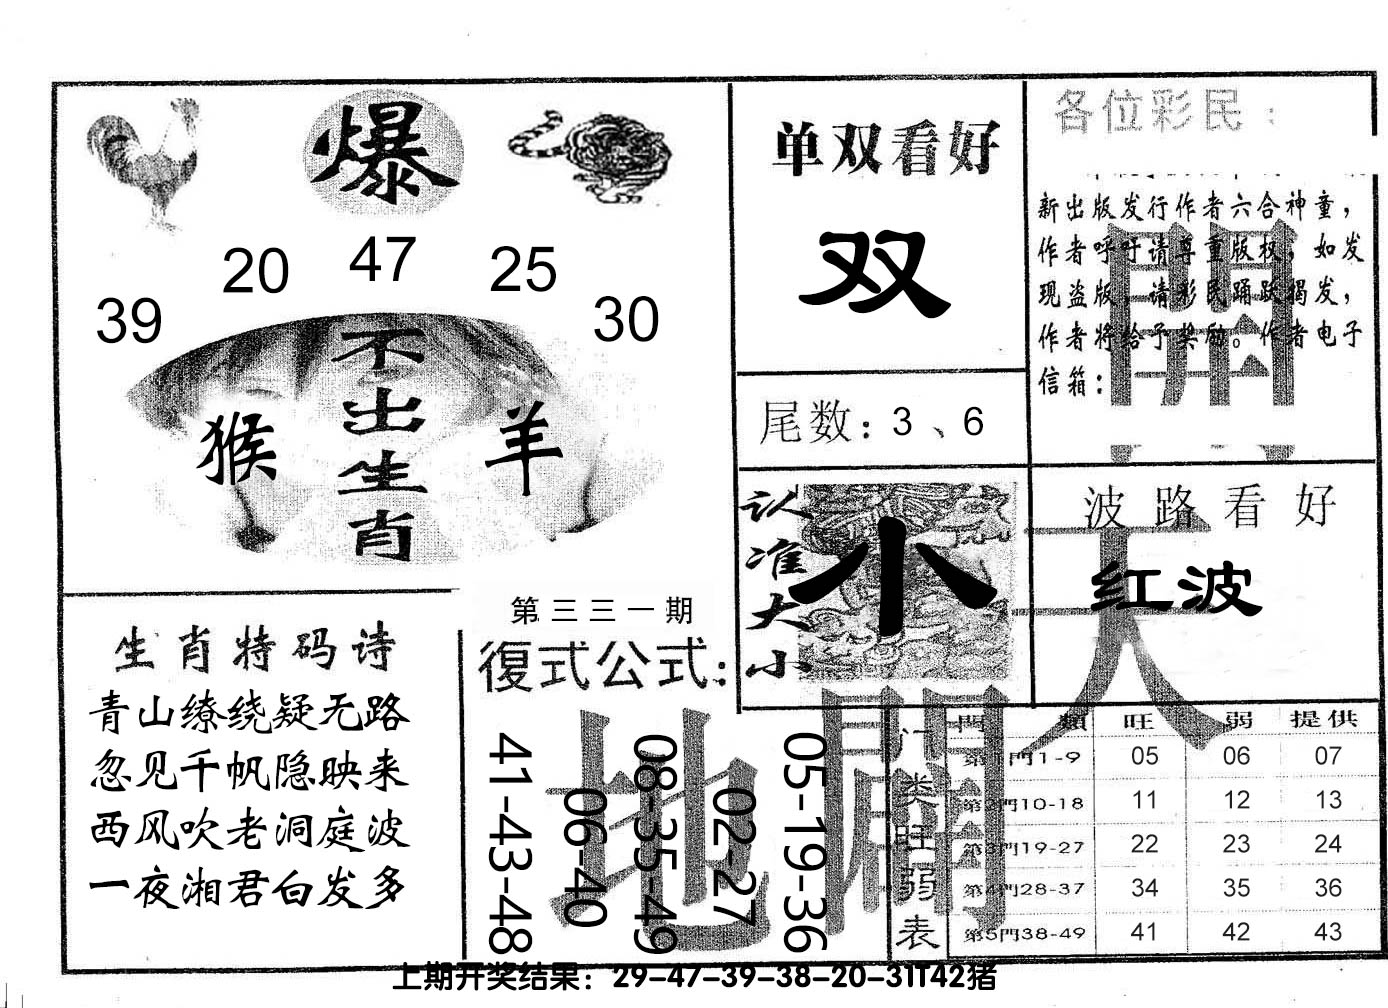 爆
39 20 47 25 30
不出生肖
猴 羊
单双看好
双
尾数：3、6
各位彩民：
新出版发行作者六合神童，
作者呼吁请尊重版权，如发
现盗版，请彩民踊跃揭发，
作者将给予奖励。作者电子
信箱：
開
认准大小
小
波路看好
红波
天
生肖特码诗
青山缭绕疑无路
忽见千帆隐映来
西风吹老洞庭波
一夜湘君白发多
第三三一期
復式公式：
41-43-48
06-40
08-35-49
02-27
05-19-36
地
門类旺弱表
門類 旺 弱 提供
第1門1-9 05 06 07
第2門10-18 11 12 13
第3門19-27 22 23 24
第4門28-37 34 35 36
第5門38-49 41 42 43
上期开奖结果：29-47-39-38-20-31T42猪